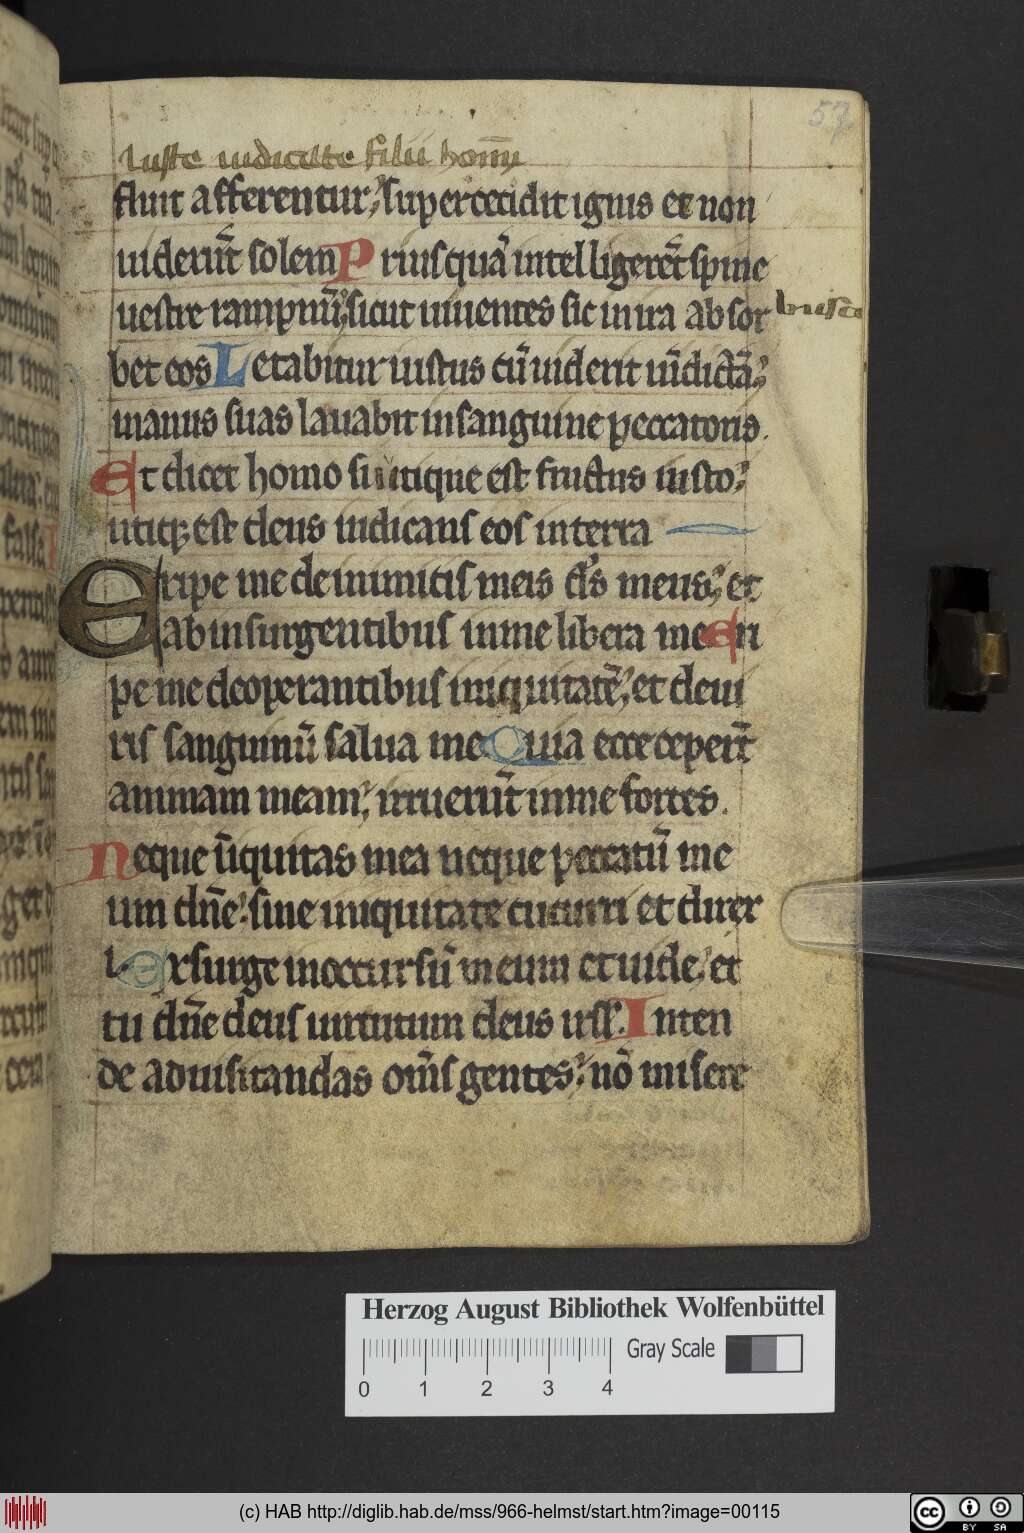 57
Iuste iudicate filii homīn
fluit afferentur; supercecidit ignis et non
uiderūt solem Priusquā intelligerēt spine
uestre rampnū; sicut uiuentes sic in ira absor
bet eos Letabitur iustus cū uiderit uīdictā;
manus suas lauabit in sanguine peccatoris.
Et dicet homo si utique est fructus iusto;
utiq; est deus iudicans eos in terra
Eripe me de inimicis meis d̄s meus; et
ab insurgentibus in me libera me Eri
pe me de operantibus iniquitatē; et de ui
ris sanguinū salua me Quia ecce ceperūt
animam meam; irruerūt in me fortes.
Neque īiquitas mea neque peccatū me
um dn̄e; sine iniquitate cucurri et direx
i. Exsurge in occursū meum et uide; et
tu dn̄e deus uirtutum deus isrl̄. Inten
de ad uisitandas om̄s gentes; nō misere
Herzog August Bibliothek Wolfenbüttel
Gray Scale
0 1 2 3 4
(c) HAB http://diglib.hab.de/mss/966-helmst/start.htm?image=00115
cc BY SA